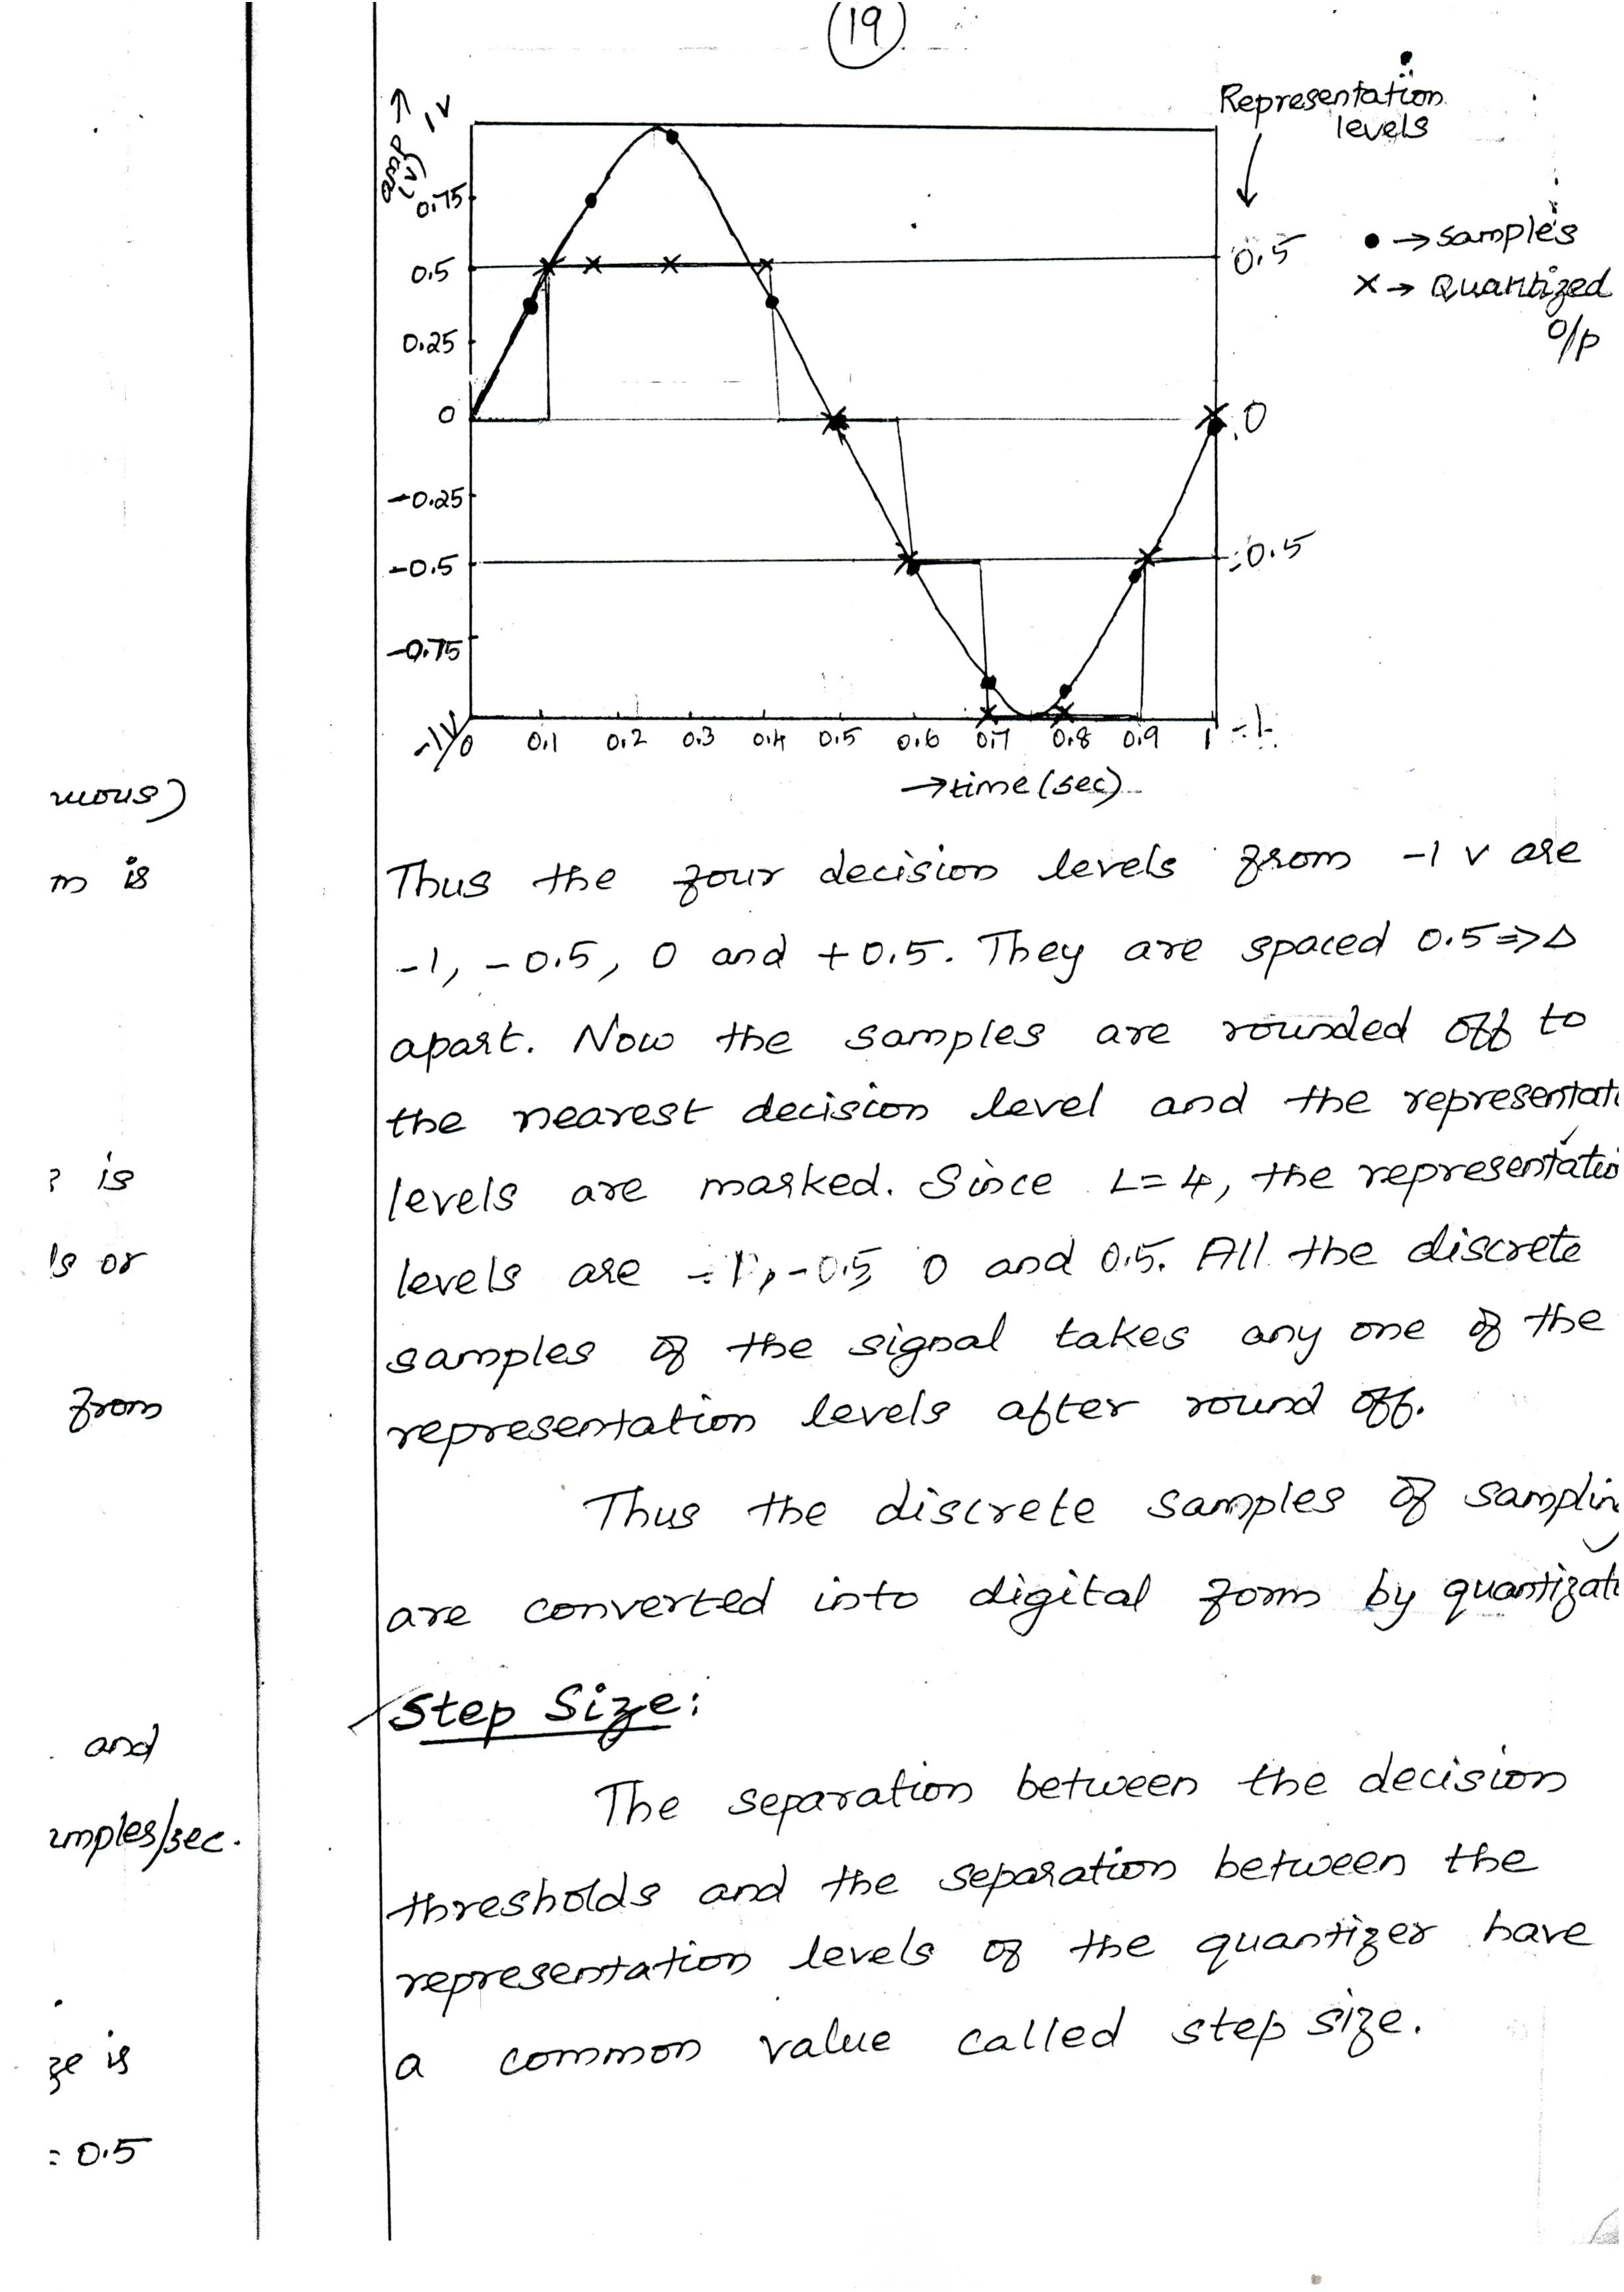 19
Representation
levels
amp →
(v)
1V
0.75
0.5
0.25
0
-0.25
-0.5
-0.75
-1V
0.5
0
-0.5
-1
● → samples
× → Quantized
o/p
0 0.1 0.2 0.3 0.4 0.5 0.6 0.7 0.8 0.9 1
→ time (sec)
Thus the four decision levels from -1 v are
-1, -0.5, 0 and +0.5. They are spaced 0.5 => Δ
apart. Now the samples are rounded off to
the nearest decision level and the representati
levels are marked. Since L=4, the representatio
levels are -1, -0.5, 0 and 0.5. All the discrete
samples of the signal takes any one of the
representation levels after round off.
Thus the discrete samples of samplin
are converted into digital form by quantizati
Step Size:
The separation between the decision
thresholds and the separation between the
representation levels of the quantizer have
a common value called step size.
m is
is
ls or
from
and
mples/sec.
ze is
= 0.5